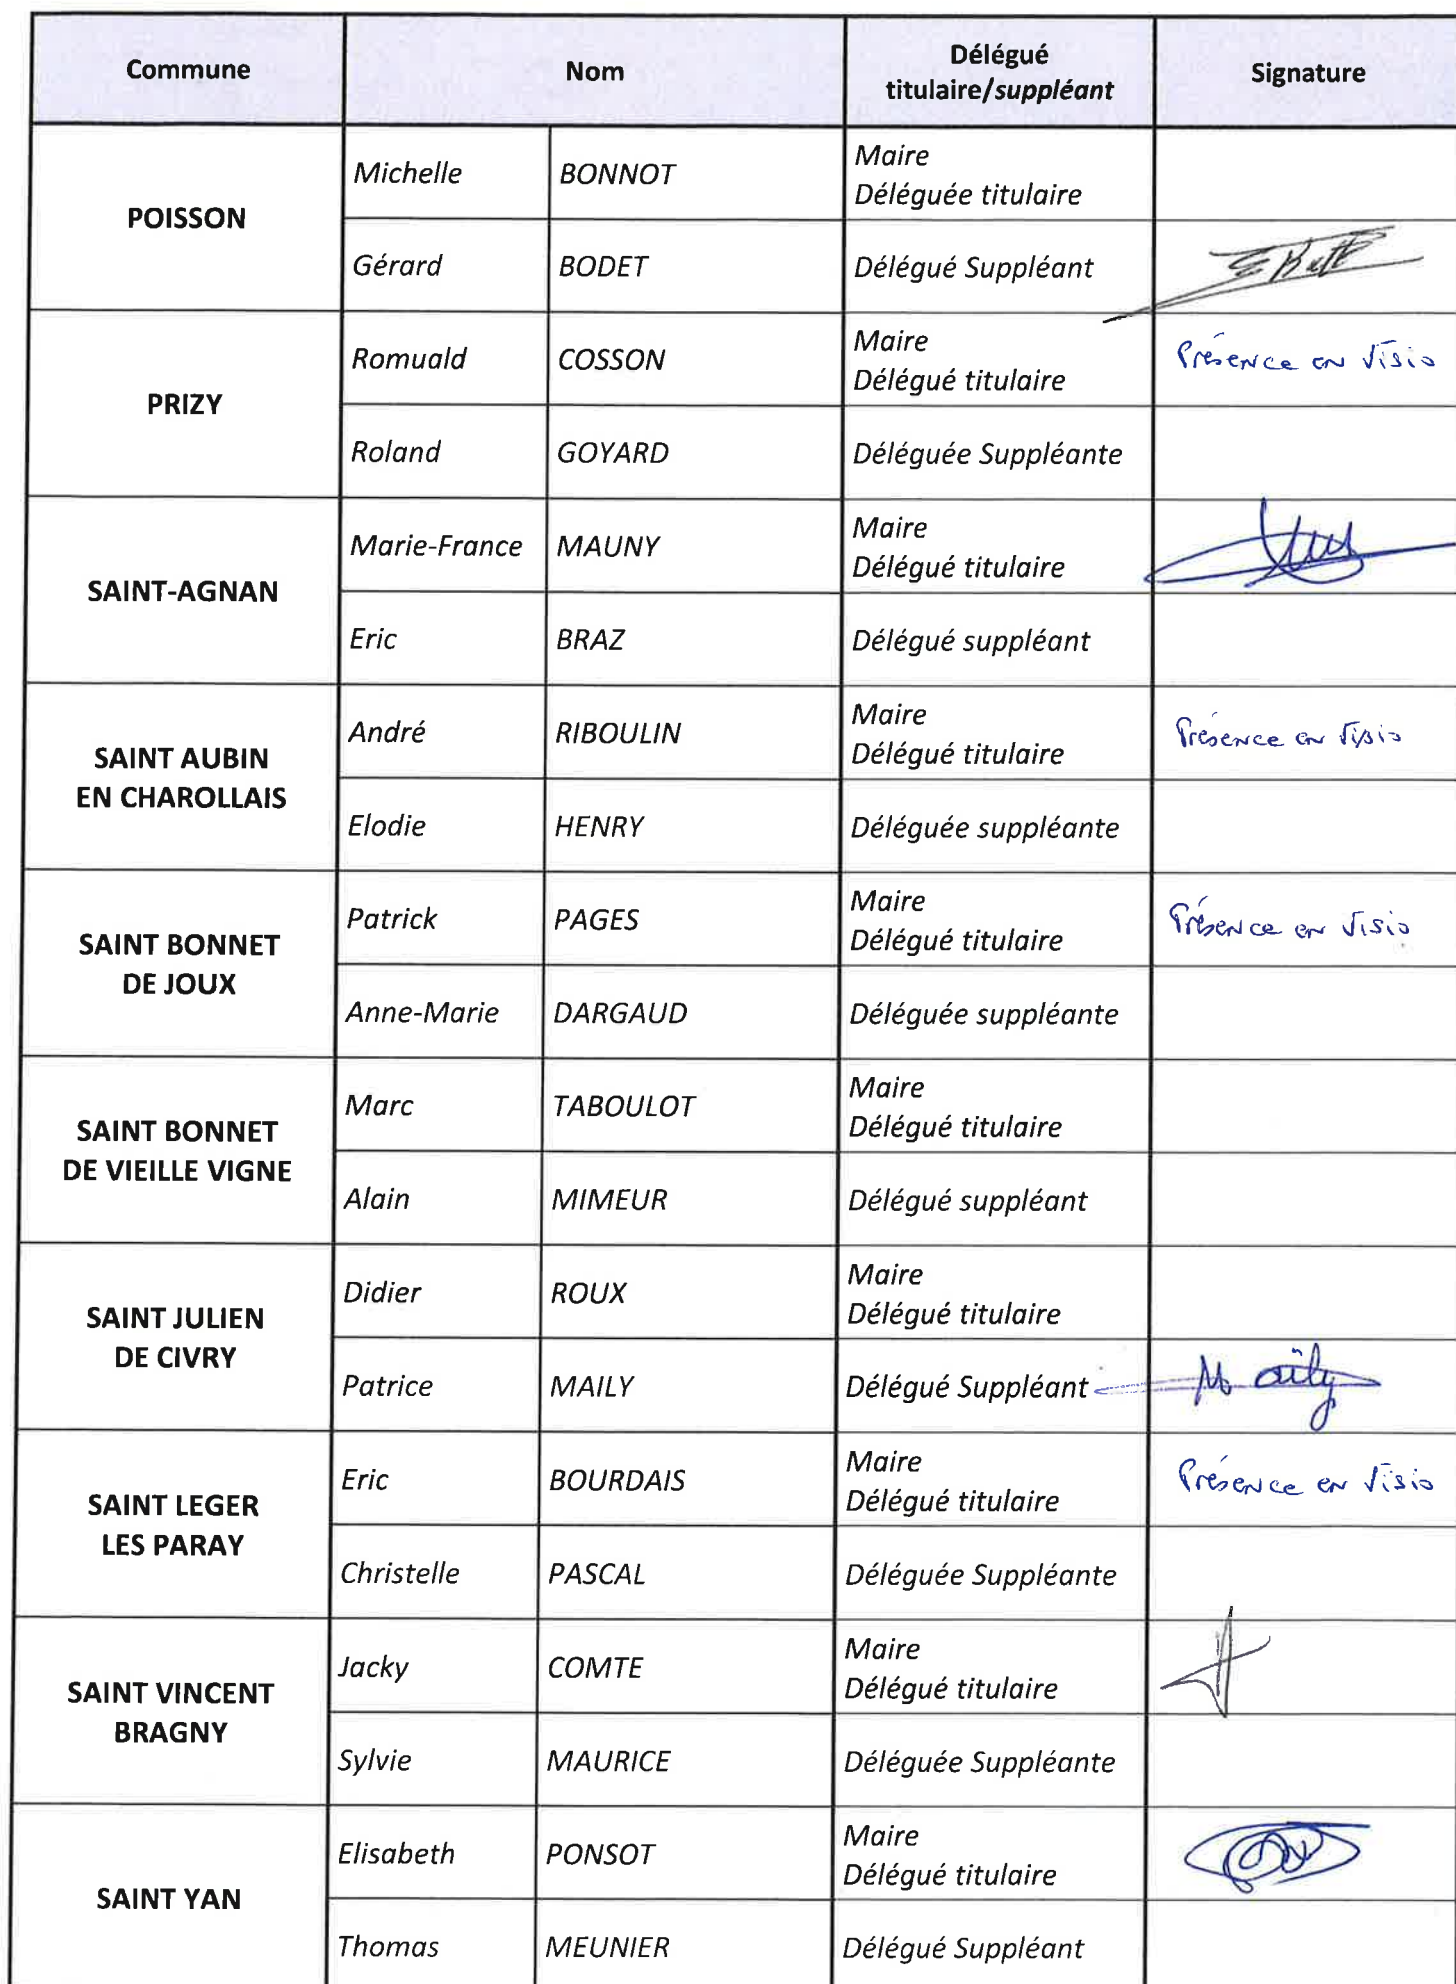 Commune Nom Délégué titulaire/suppléant Signature
POISSON
Michelle BONNOT Maire
Déléguée titulaire
Gérard BODET Délégué Suppléant
PRIZY
Romuald COSSON Maire
Délégué titulaire Présence en Visio
Roland GOYARD Déléguée Suppléante
SAINT-AGNAN
Marie-France MAUNY Maire
Délégué titulaire
Eric BRAZ Délégué suppléant
SAINT AUBIN
EN CHAROLLAIS
André RIBOULIN Maire
Délégué titulaire Présence en Visio
Elodie HENRY Déléguée suppléante
SAINT BONNET
DE JOUX
Patrick PAGES Maire
Délégué titulaire Présence en Visio
Anne-Marie DARGAUD Déléguée suppléante
SAINT BONNET
DE VIEILLE VIGNE
Marc TABOULOT Maire
Délégué titulaire
Alain MIMEUR Délégué suppléant
SAINT JULIEN
DE CIVRY
Didier ROUX Maire
Délégué titulaire
Patrice MAILY Délégué Suppléant Maïly
SAINT LEGER
LES PARAY
Eric BOURDAIS Maire
Délégué titulaire Présence en Visio
Christelle PASCAL Déléguée Suppléante
SAINT VINCENT
BRAGNY
Jacky COMTE Maire
Délégué titulaire
Sylvie MAURICE Déléguée Suppléante
SAINT YAN
Elisabeth PONSOT Maire
Délégué titulaire
Thomas MEUNIER Délégué Suppléant